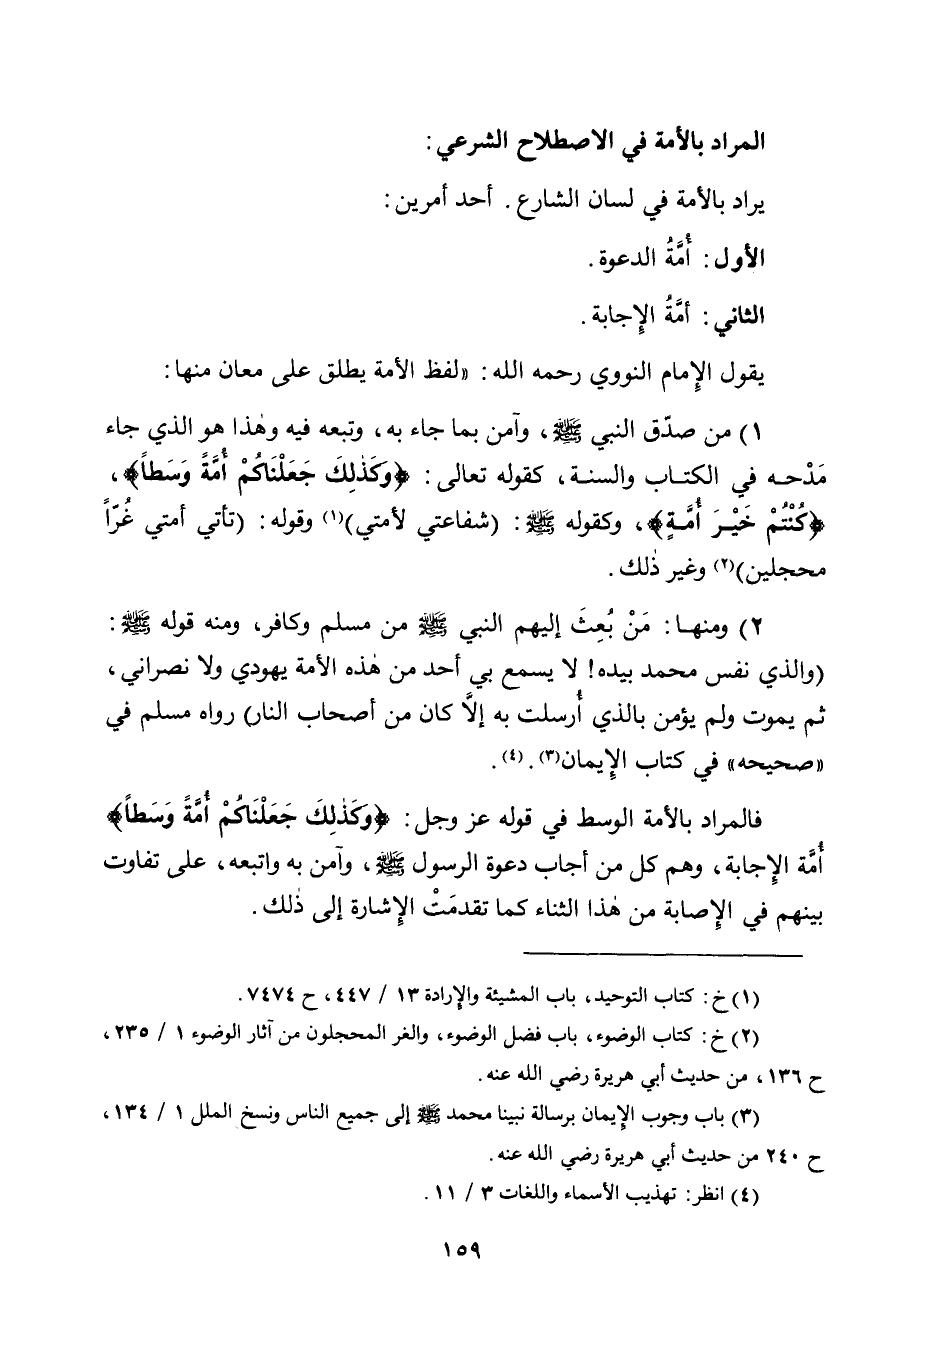 المراد بالأمة في الاصطلاح الشرعي :
يراد بالأمة في لسان الشارع . أحد أمرين :
الأول : أُمَّةُ الدعوة .
الثاني : أمَّةُ الإجابة .
يقول الإمام النووي رحمه الله : «لفظ الأمة يطلق على معان منها :
١) من صدّق النبي ﷺ ، وآمن بما جاء به ، وتبعه فيه وهٰذا هو الذي جاء
مَدْحـه في الكتـاب والسنـة ، كقوله تعالى : ﴿وَكَذٰلِكَ جَعَلْنَاكُمْ أُمَّةً وَسَطاً﴾ ،
﴿كُنْتُمْ خَيْـرَ أُمَّـةٍ﴾ ، وكقوله ﷺ : (شفاعتي لأمتي)(١) وقوله : (تأتي أمتي غُرّاً
محجلين)(٢) وغير ذٰلك .
٢) ومنهـا : مَنْ بُعِثَ إليهم النبي ﷺ من مسلم وكافر ، ومنه قوله ﷺ :
(والذي نفس محمد بيده! لا يسمع بي أحد من هٰذه الأمة يهودي ولا نصراني ،
ثم يموت ولم يؤمن بالذي أُرسلت به إلَّا كان من أصحاب النار) رواه مسلم في
«صحيحه» في كتاب الإيمان(٣) . (٤) .
فالمراد بالأمة الوسط في قوله عز وجل : ﴿وَكَذٰلِكَ جَعَلْنَاكُمْ أُمَّةً وَسَطاً﴾
أُمَّة الإجابة ، وهم كل من أجاب دعوة الرسول ﷺ ، وآمن به واتبعه ، على تفاوت
بينهم في الإصابة من هٰذا الثناء كما تقدمَتْ الإشارة إلى ذٰلك .
(١) خ : كتاب التوحيد ، باب المشيئة والإرادة ١٣ / ٤٤٧ ، ح ٧٤٧٤ .
(٢) خ : كتاب الوضوء ، باب فضل الوضوء ، والغر المحجلون من آثار الوضوء ١ / ٢٣٥ ،
ح ١٣٦ ، من حديث أبي هريرة رضي الله عنه .
(٣) باب وجوب الإيمان برسالة نبينا محمد ﷺ إلى جميع الناس ونسخ الملل ١ / ١٣٤ ،
ح ٢٤٠ من حديث أبي هريرة رضي الله عنه .
(٤) انظر : تهذيب الأسماء واللغات ٣ / ١١ .
١٥٩